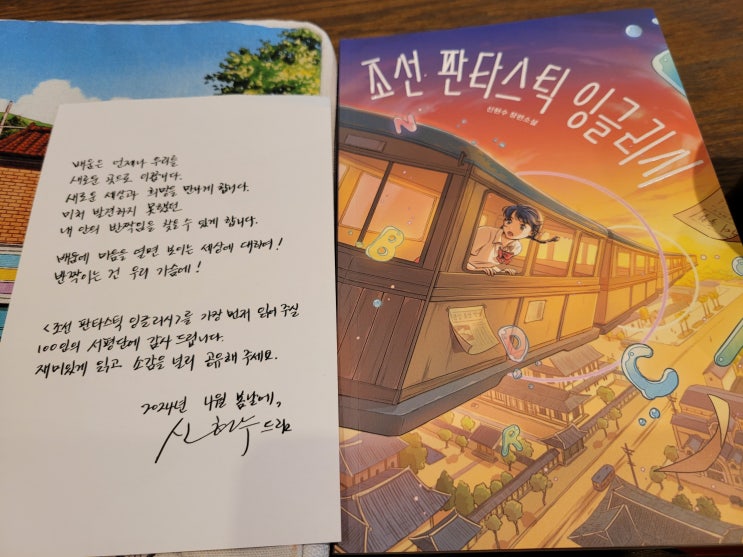 배움은 언제나 우리를
새로운 곳으로 이끕니다.
새로운 세상과 희망을 만나게 합니다.
미처 발견하지 못했던
내 안의 반짝임을 찾을 수 있게 합니다.
배움에 마음을 열면 보이는 세상에 대하여!
반짝이는 건 우리 가슴에!
<조선 판타스틱 잉글리시>를 가장 먼저 읽어 주실
100인의 서평단에 감사 드립니다.
재미있게 읽고 소감을 널리 공유해 주세요.
2024년 4월 봄날에,
신현수 드림
조선 판타스틱 잉글리시
신현수 장편소설
N
B
D
C
R